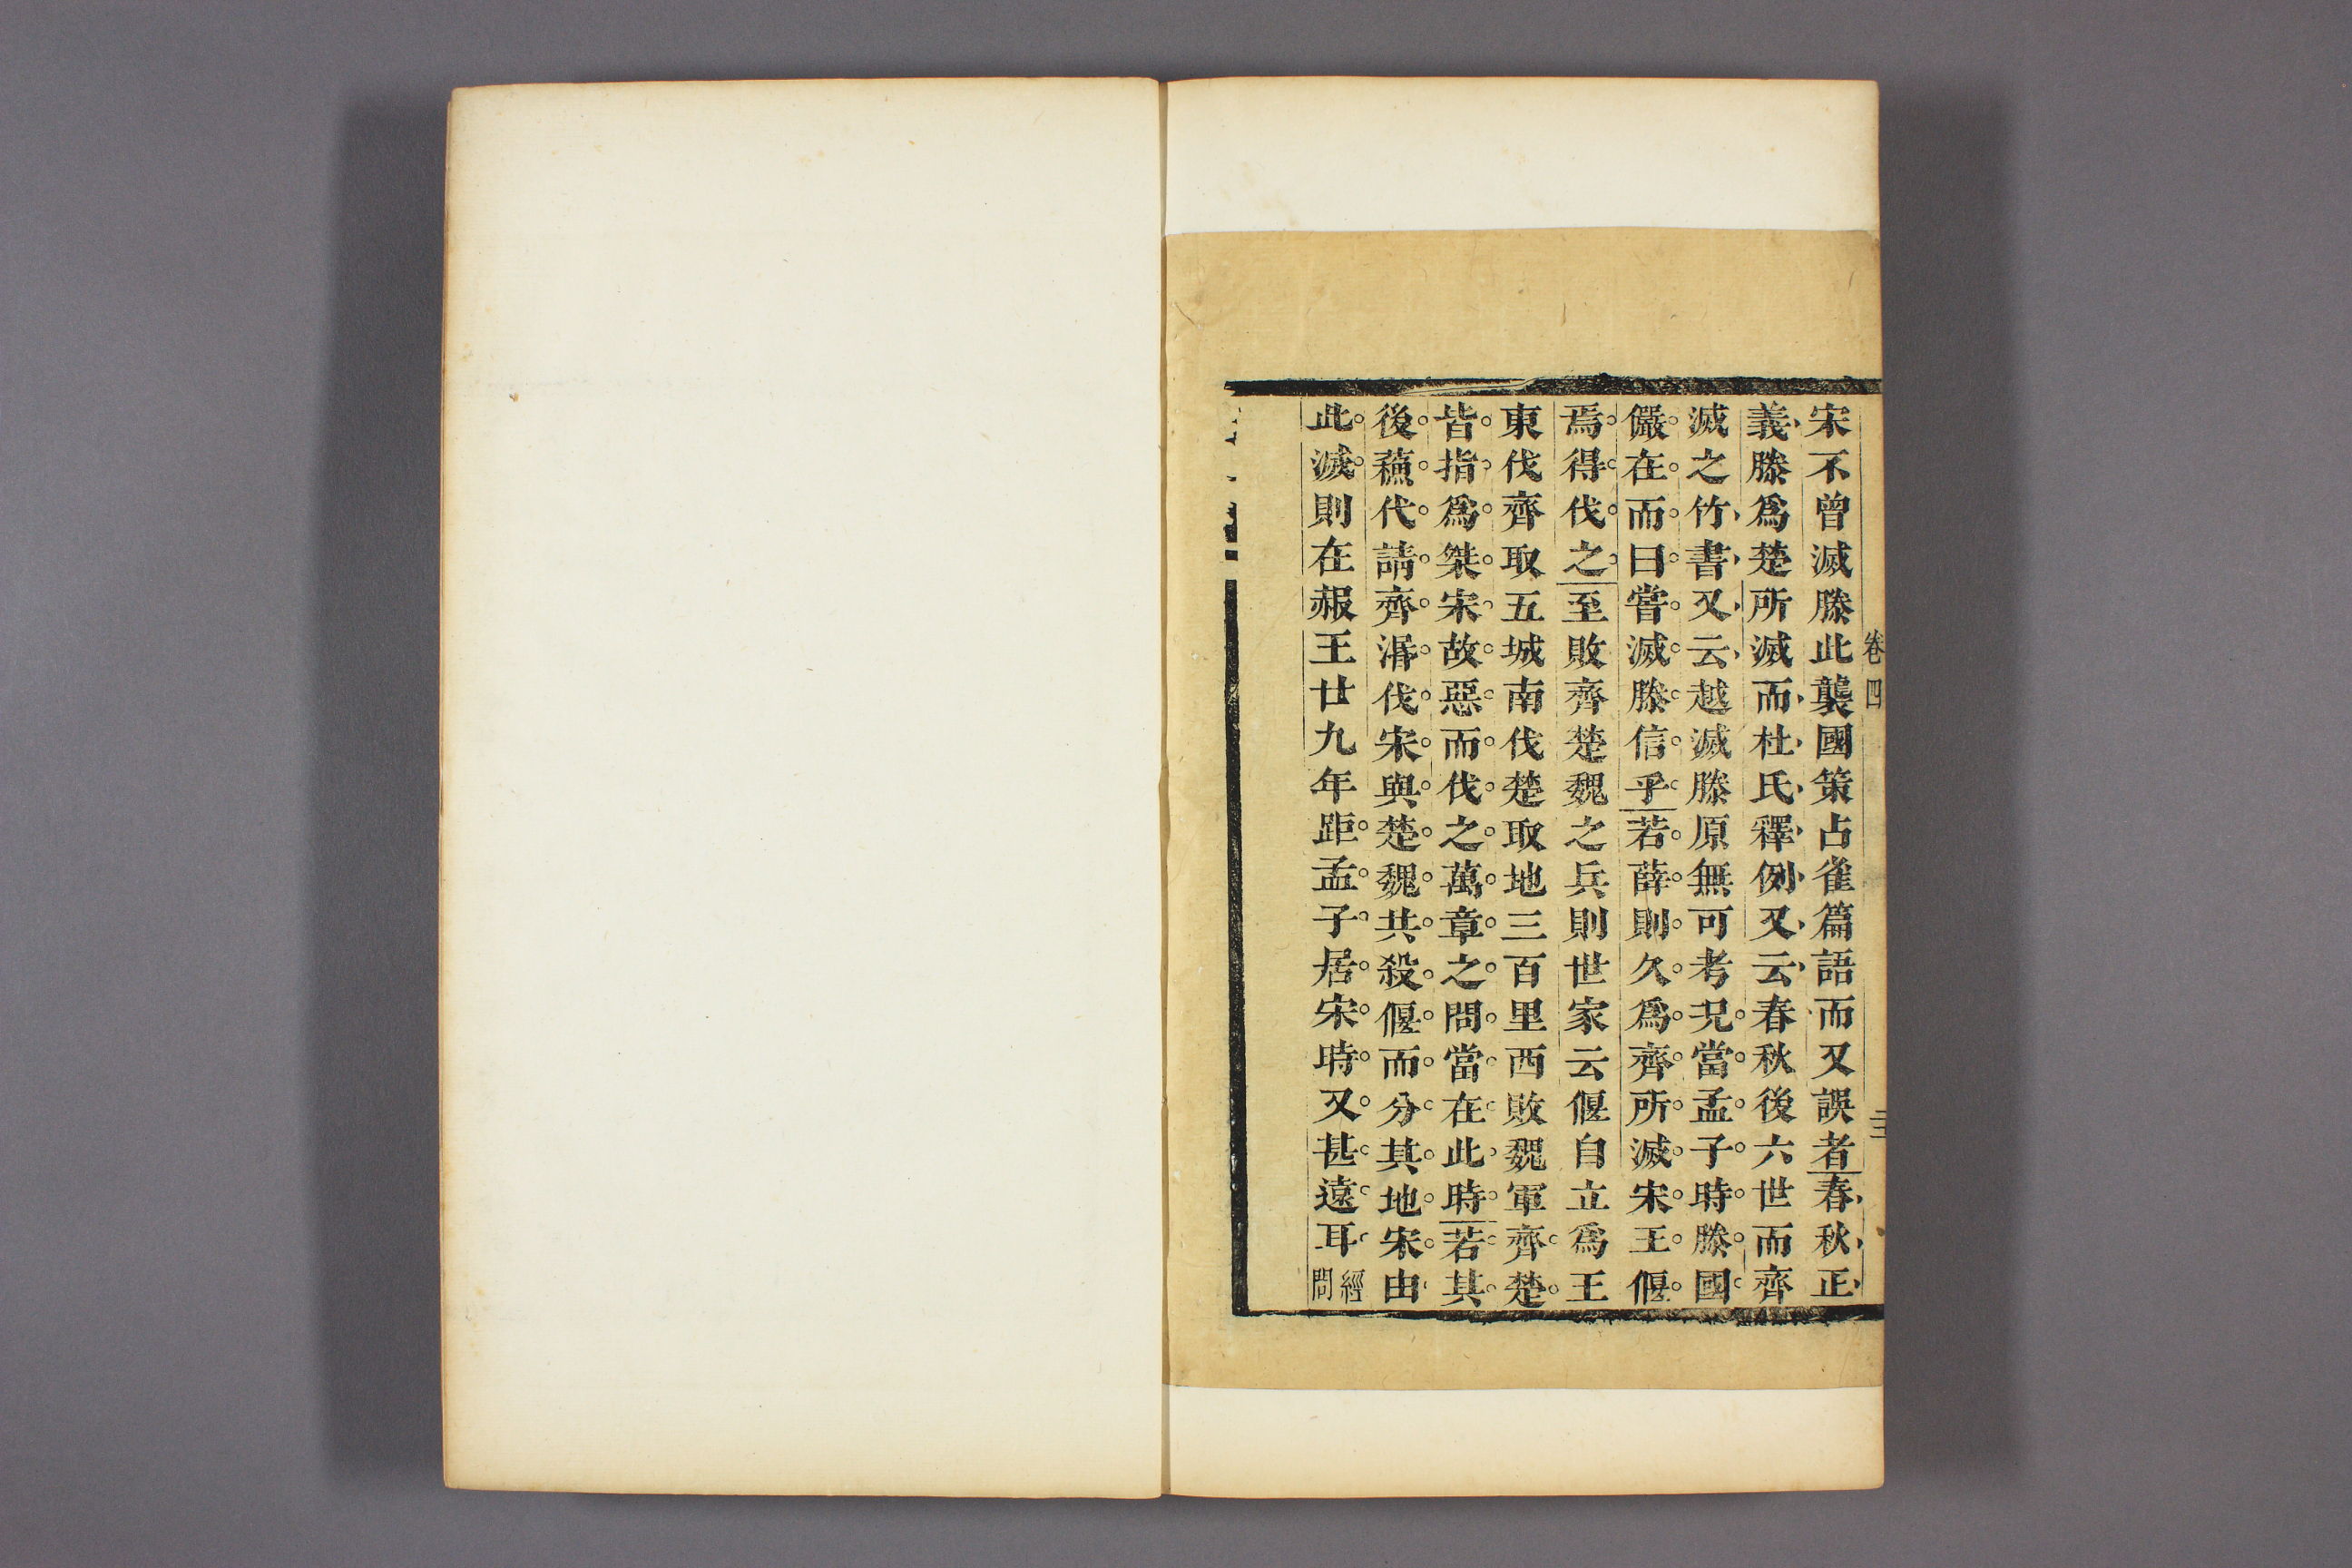 卷四
三
宋不曾滅滕此襲國策占雀篇語而又誤者春秋正
義滕爲楚所滅而杜氏釋例又云春秋後六世而齊
滅之竹書又云越滅滕原無可考況當孟子時滕國
儼在而曰嘗滅滕信乎若薛則久爲齊所滅宋王偃
焉得伐之至敗齊楚魏之兵則世家云偃自立爲王
東伐齊取五城南伐楚取地三百里西敗魏軍齊楚
皆指爲桀宋故惡而伐之萬章之問當在此時若其
後蘓代請齊湣伐宋與楚魏共殺偃而分其地宋由
此滅則在赧王廿九年距孟子居宋時又甚遠耳經問